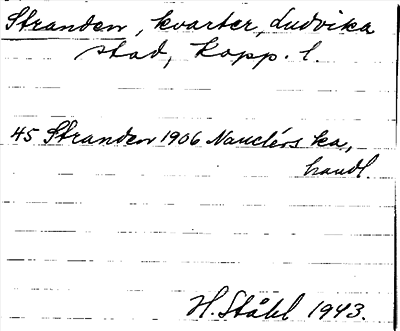 Stranden, kvarter, Ludvika
stad, Kopp. l.
45 Stranden 1906 Nauclérs ka,
handl.
H. Ståhl 1943.